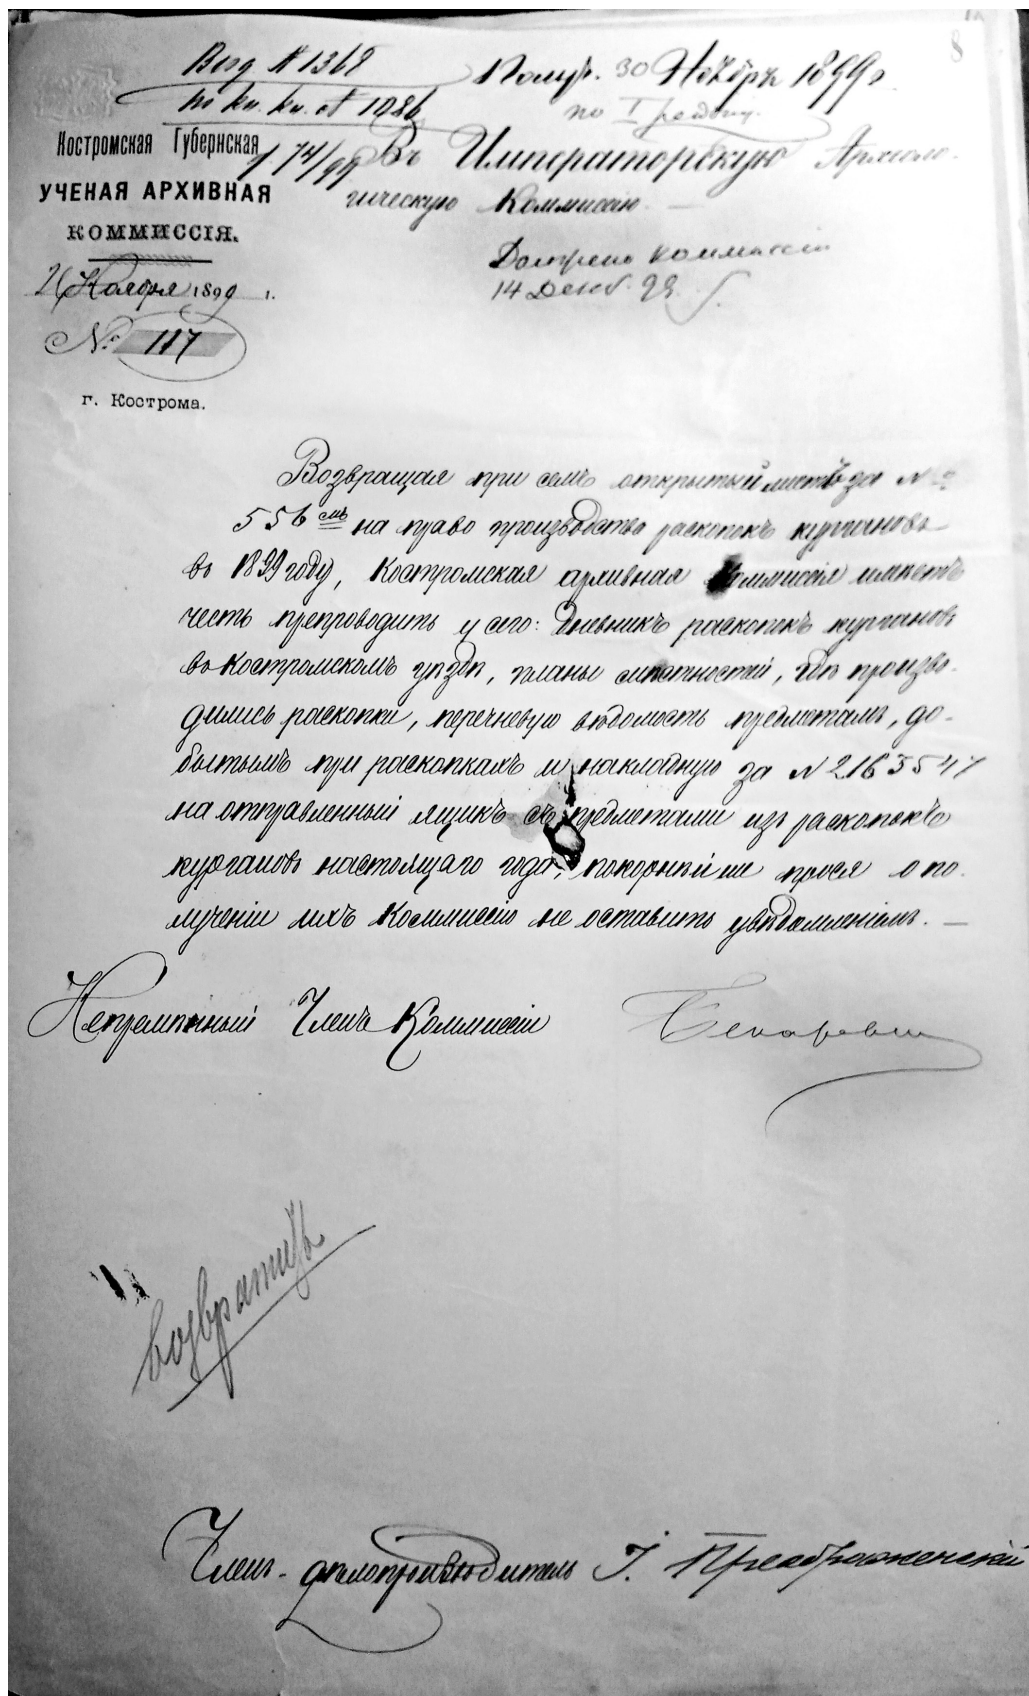 8
Вход № 1368
по кн. кн. № 1986
174/99
Получ. 30 Ноябрь 1899 г.
по I
Костромская Губернская
УЧЕНАЯ АРХИВНАЯ
КОММИССІЯ.
Ноября 1899 г.
№ 117
г. Кострома.
Въ Императорскую Археоло-
гическую Коммиссію. —
Доложено коммиссіи
14 Декаб. 99.
Возвращая при семъ открытый листъ за №
556 смъ на право производства раскопокъ кургановъ
въ 1899 году, Костромская архивная Коммиссія имѣетъ
честь препроводить у сего: дневникъ раскопокъ кургановъ
въ Костромскомъ уѣздѣ, планы мѣстностей, гдѣ произво-
дились раскопки, перечневую вѣдомость предметамъ, до-
бытымъ при раскопкахъ и накладную за № 2163547
на отправленный ящикъ съ предметами изъ раскопокъ
кургановъ настоящаго года, покорнѣйше прося о по-
лученіи ихъ Коммиссію не оставить увѣдомленіемъ. —
Непремѣнный Членъ Коммиссіи Бекаревич
возвратить
Членъ-дѣлопроизводитель І. Преображенскій